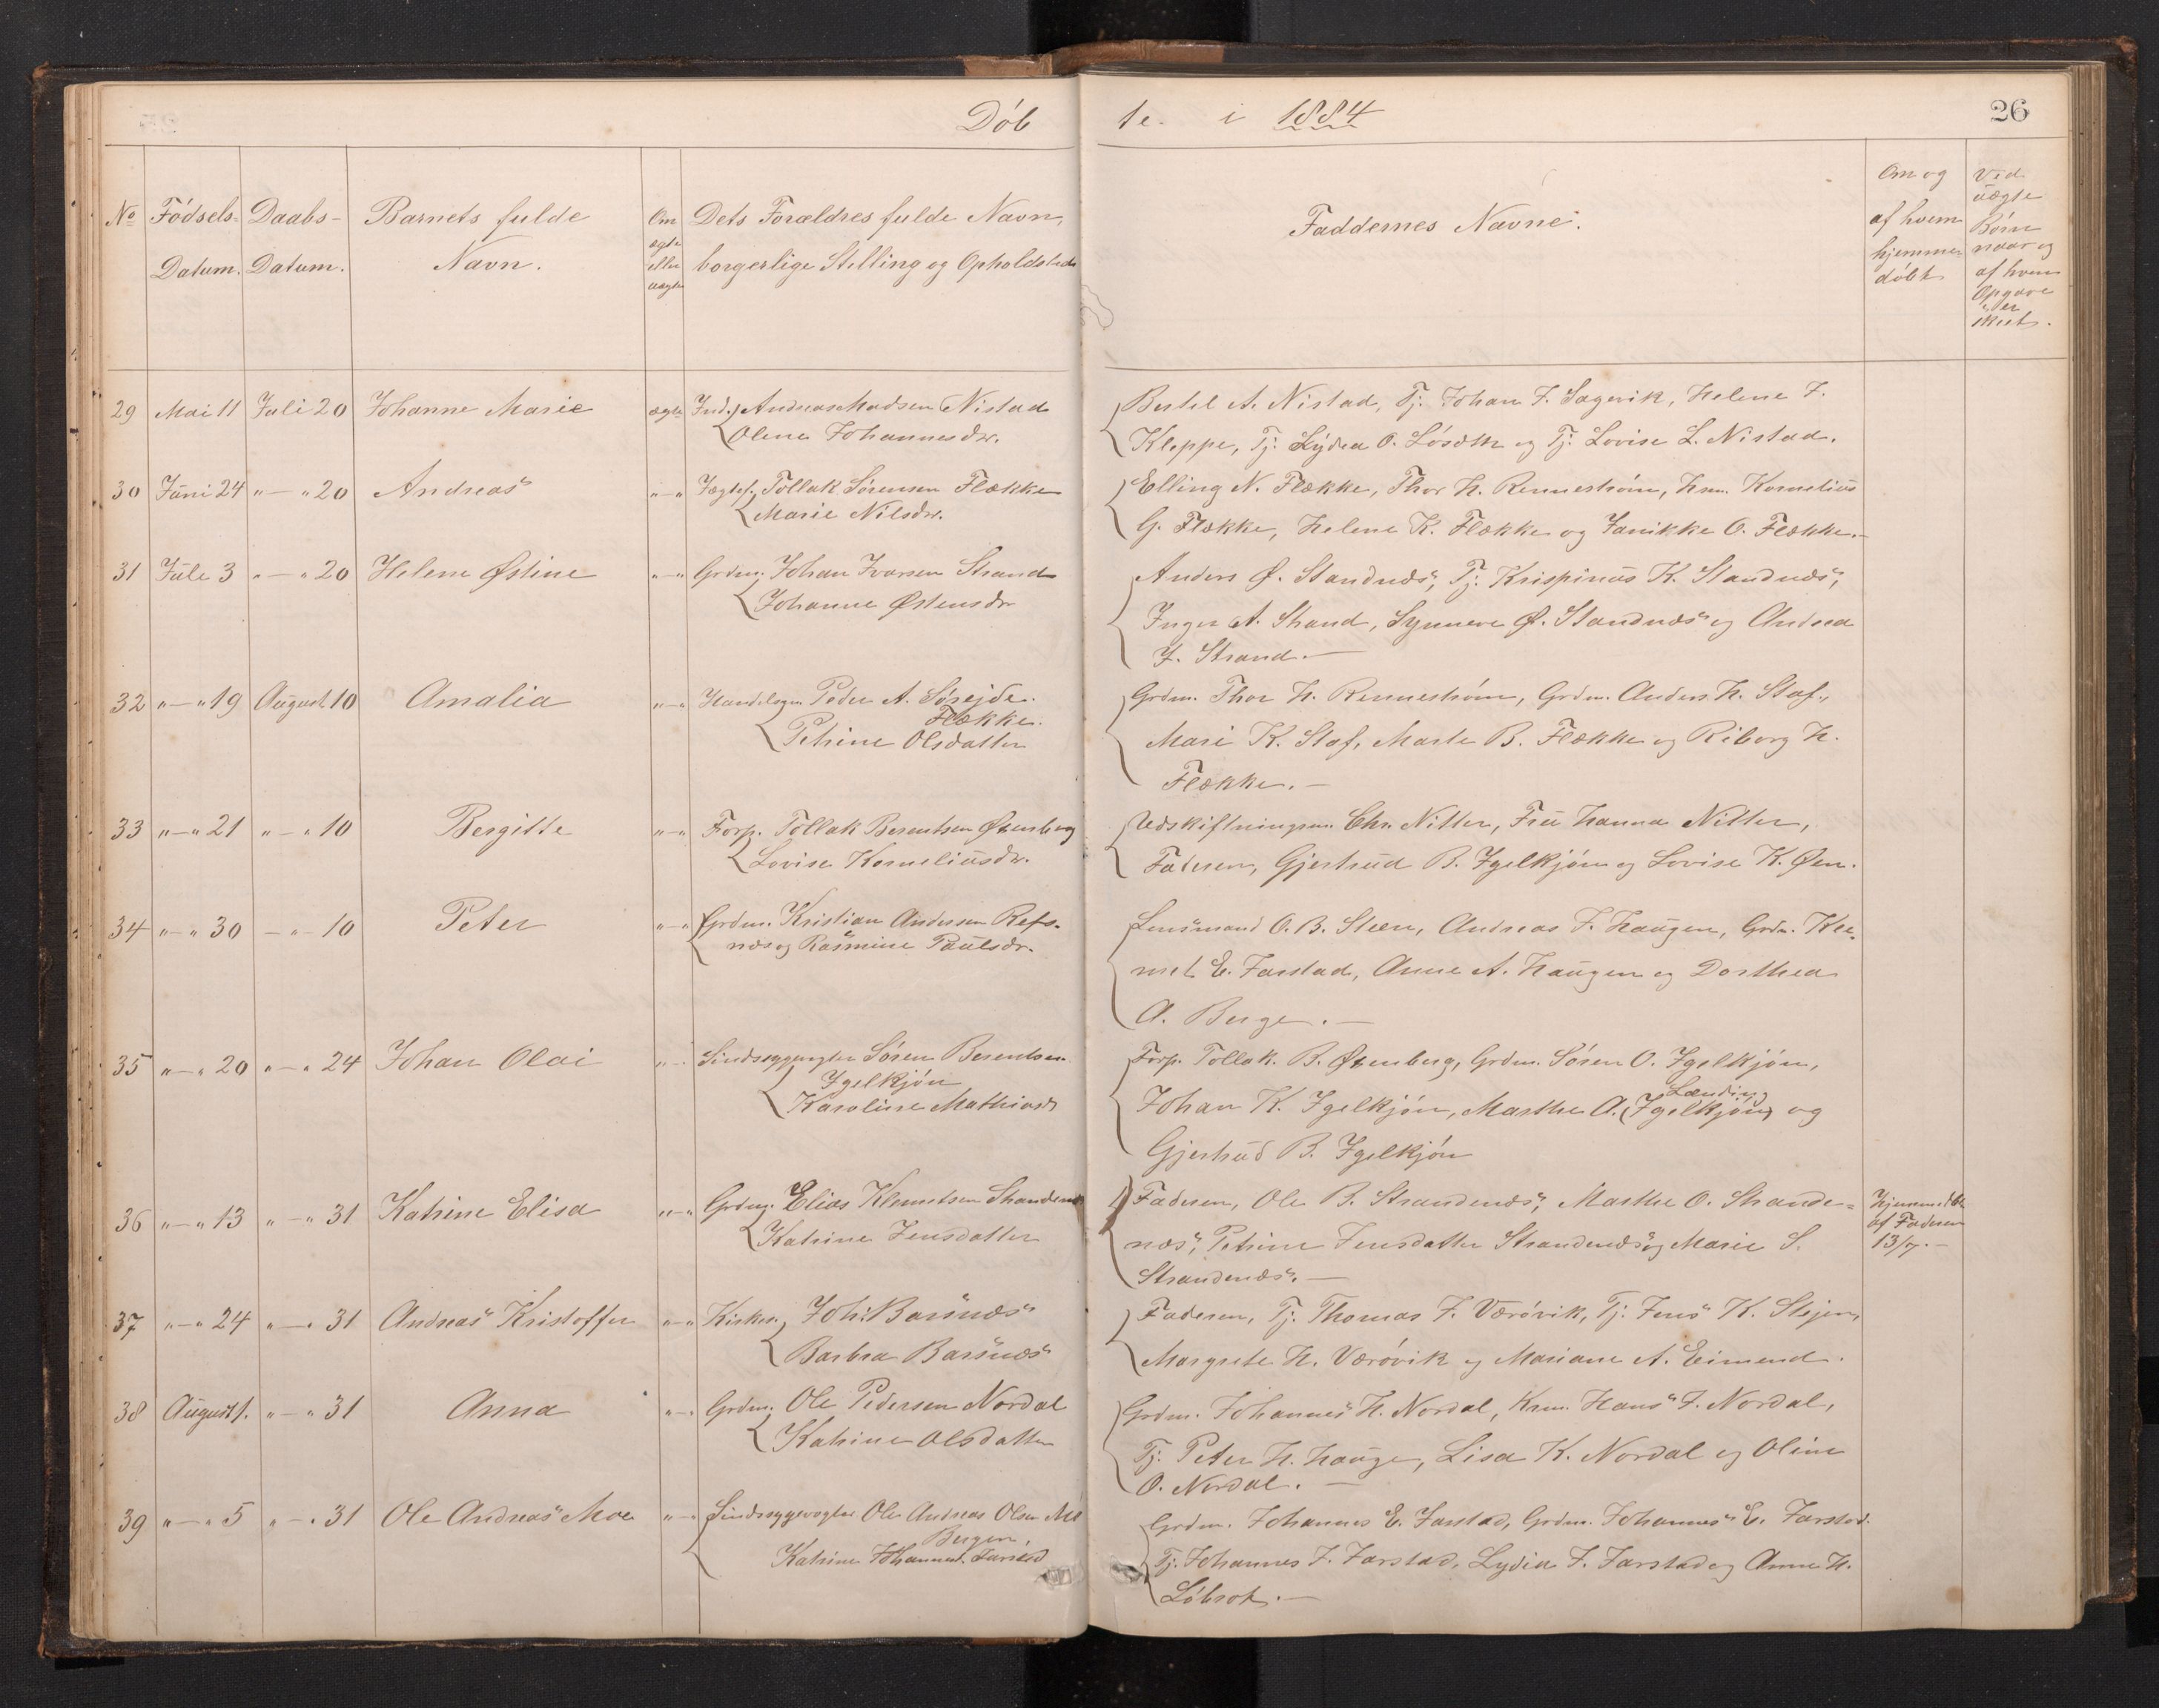 Døb
te. i 1884
26
No
Fødsels-
Datum.
Daabs-
Datum.
Barnets fulde
Navn.
Om
ægte
eller
uægte
Dets Forældres fulde Navn,
borgerlige Stilling og Opholdsted
Faddernes Navne.
Om og
af hvem
hjemme-
døbt
Ved
uægte
Børn
naar og
af hvem
Opgave
er
skeet.
29 Mai 11 Juli 20 Johanne Marie ægte Ind. Andreas Madsen Nistad
Olena Johannesdr.
Bertel A. Nistad, Tj. Johan J. Sagevik, Helene J.
Kleppe, Tj. Lydia O. Løseth og Tj. Lovise L. Nistad.
30 Juni 24 "—" 20 Andreas "—" Jægtef. Tollak Sørensen Flække
Marie Nilsdr.
Elling N. Flække, Thor H. Rennestrøm, Hsm. Kornelius
G. Flække, Helene K. Flække og Janikke O. Flække.—
31 Juli 3 "—" 20 Helene Østine "—" Grdm. Johan Ivarsen Strand
Johanne Østensdr
Anders Ø. Standnæs, Tj. Krispinus K. Standnæs,
Inger A. Strand, Synneve Ø. Standnæs og Andrea
J. Strand.—
32 "—" 19 August 10 Amalia "—" Handelsm. Peder A. Sørejde.
Flække.
Petrine Olsdatter
Grdm. Thor H. Rennestrøm, Grdm. Anders H. Staf.,
Mari K. Staf, Marte B. Flække og Riborg H.
Flække.—
33 "—" 21 "—" 10 Bergitte "—" Forp. Tollak Berentsen Øxenberg
Lovise Korneliusdr.
Udskiftningsm. Chr. Nitter, Fru Hanna Nitter,
Faderen, Gjertrud B. Igelkjøn og Lovise K. Øen.
34 "—" 30 —"— 10 Peter "—" Grdm. Kristian Andersen Refs-
næs og Rasmine Paulsdr.
Lensmand O. B. Steen, Andreas J. Haugen, Grdm. Kle-
met E. Farstad, Anne A. Haugen og Dorthea
A. Berge.—
35 "—" 20 "—" 24 Johan Olai "—" Sindssygevogter Søren Berentsen
Igelkjøn
Karoline Mathiasdr
Forp. Tollak B. Øxenberg, Grdm. Søren O. Igelkjøn,
Lænding
Johan K. Igelkjøn, Marthe A. (Igelkjøn) og
Gjertrud B. Igelkjøn
36 "—" 13 "—" 31 Katrine Elisa "—" Grdm. Elias Klemetsen Strandenæs
Katrine Jensdatter
Faderen, Ole B. Strandenæs, Marthe O. Strande-
næs, Petrine Jensdatter Strandenæs og Marie S.
Strandenæs.—
Hjemmedøbt
af Faderen
13/7.—
37 "—" 24 "—" 31 Andreas Kristoffer "—" Kirkes. Joh. Barsnæs
Barbra Barsnæs
Faderen, Tj. Thomas J. Værøvik, Tj. Jens K. Stejen,
Margrete H. Værøvik og Mariane A. Eimend.
38 August 1. "—" 31 Anna "—" Grdm. Ole Pedersen Nordal
Katrine Olsdatter
Grdm. Johannes H. Nordal, Krm. Hans J. Nordal,
Tj. Peter H. Hauge, Lisa K. Nordal og Oline
O. Nordal.—
39 "—" 5 "—" 31 Ole Andreas Moe "—" Sindssygevogter Ole Andreas Olsen
Bergen,
Katrine Johannesd. Farstad
Grdm. Johannes E. Farstad, Grdm. Johannes E. Farstad.
Tj. Johannes J. Farstad, Lydia J. Farstad og Anne H.
Løbrok.—